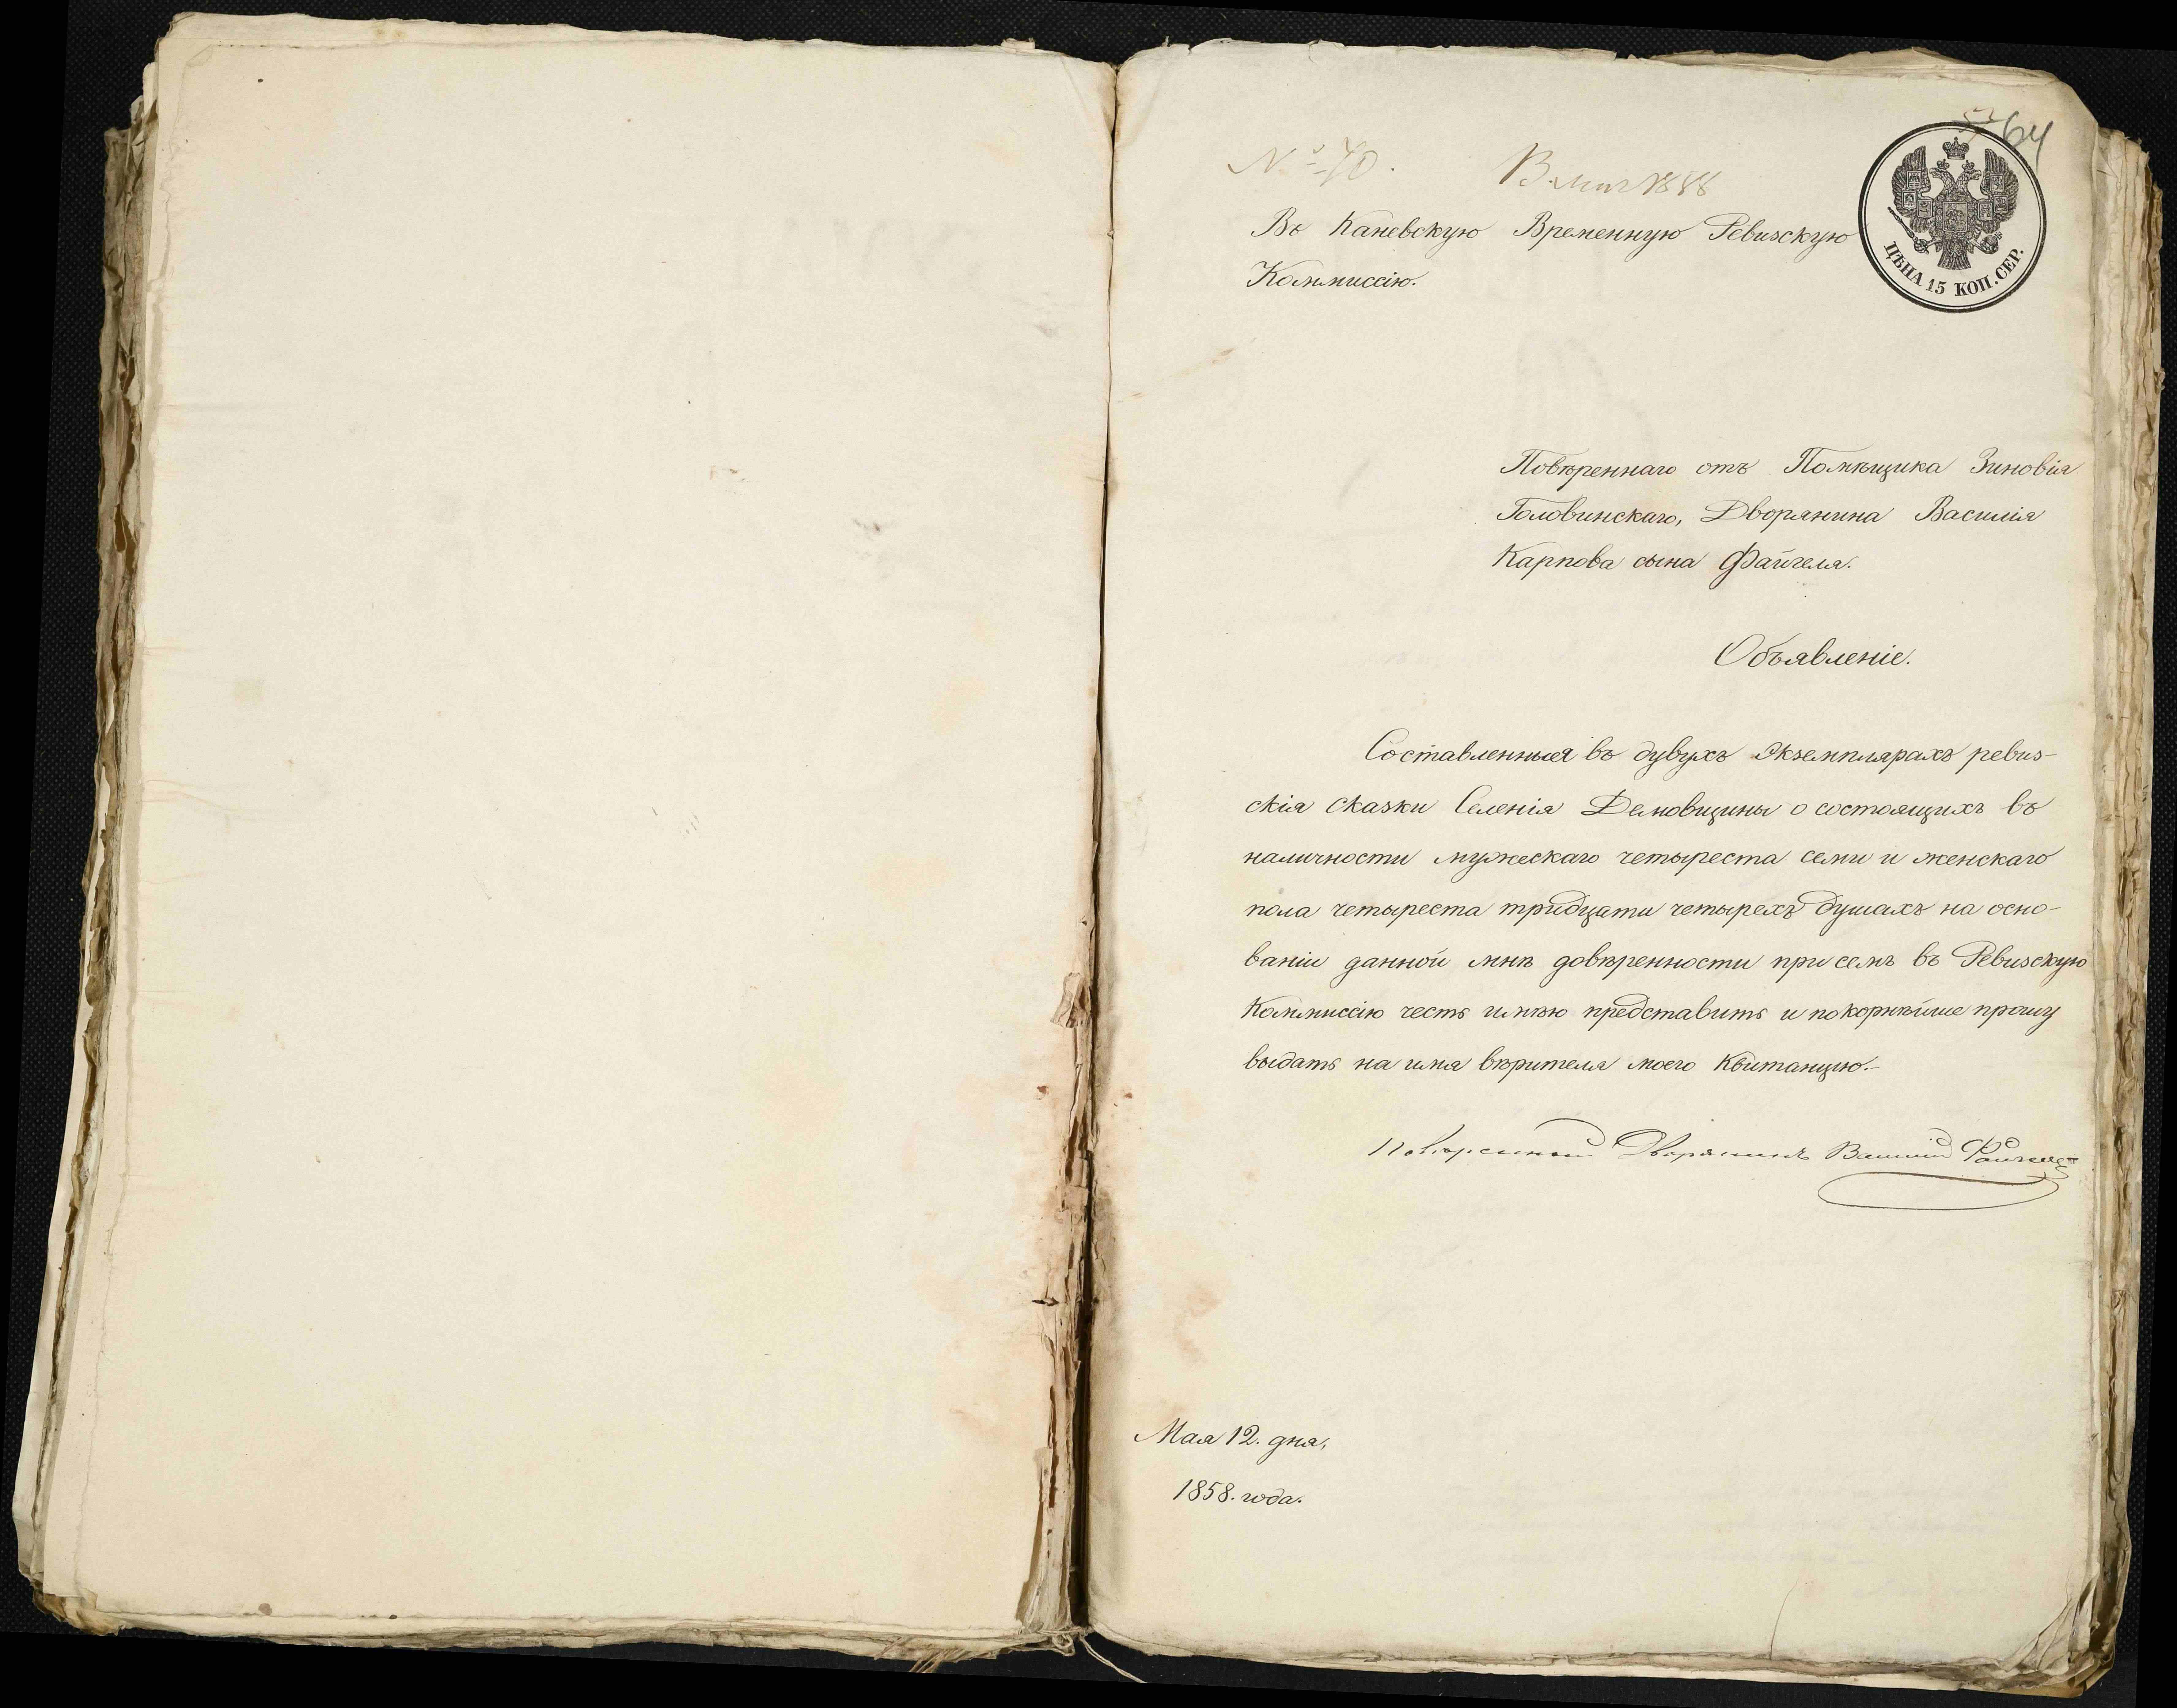 64
№ 40.
Въ Каневскую Временную Ревизскую
Коммиссію.
ЦѢНА 15 КОП. СЕР.
Повѣреннаго отъ Помѣщика Зиновія
Головинскаго, Дворянина Василія
Карпова сына Файгеля.
Объявленіе.
Составленныя въ дувухъ экземплярахъ ревиз-
скія сказки Селенія Демовщины о состоящихъ въ
наличности мужескаго четыреста семи и женскаго
пола четыреста тридцати четырехъ душахъ на осно-
ваніи данной мнѣ довѣренности при семъ въ Ревизскую
Коммиссію честь имѣю представить и покорнѣйше прошу
выдать на имя вѣрителя моего Квитанцію.-
Повѣренный Дворянинъ Василій Файгель
Мая 12. дня,
1858. года.